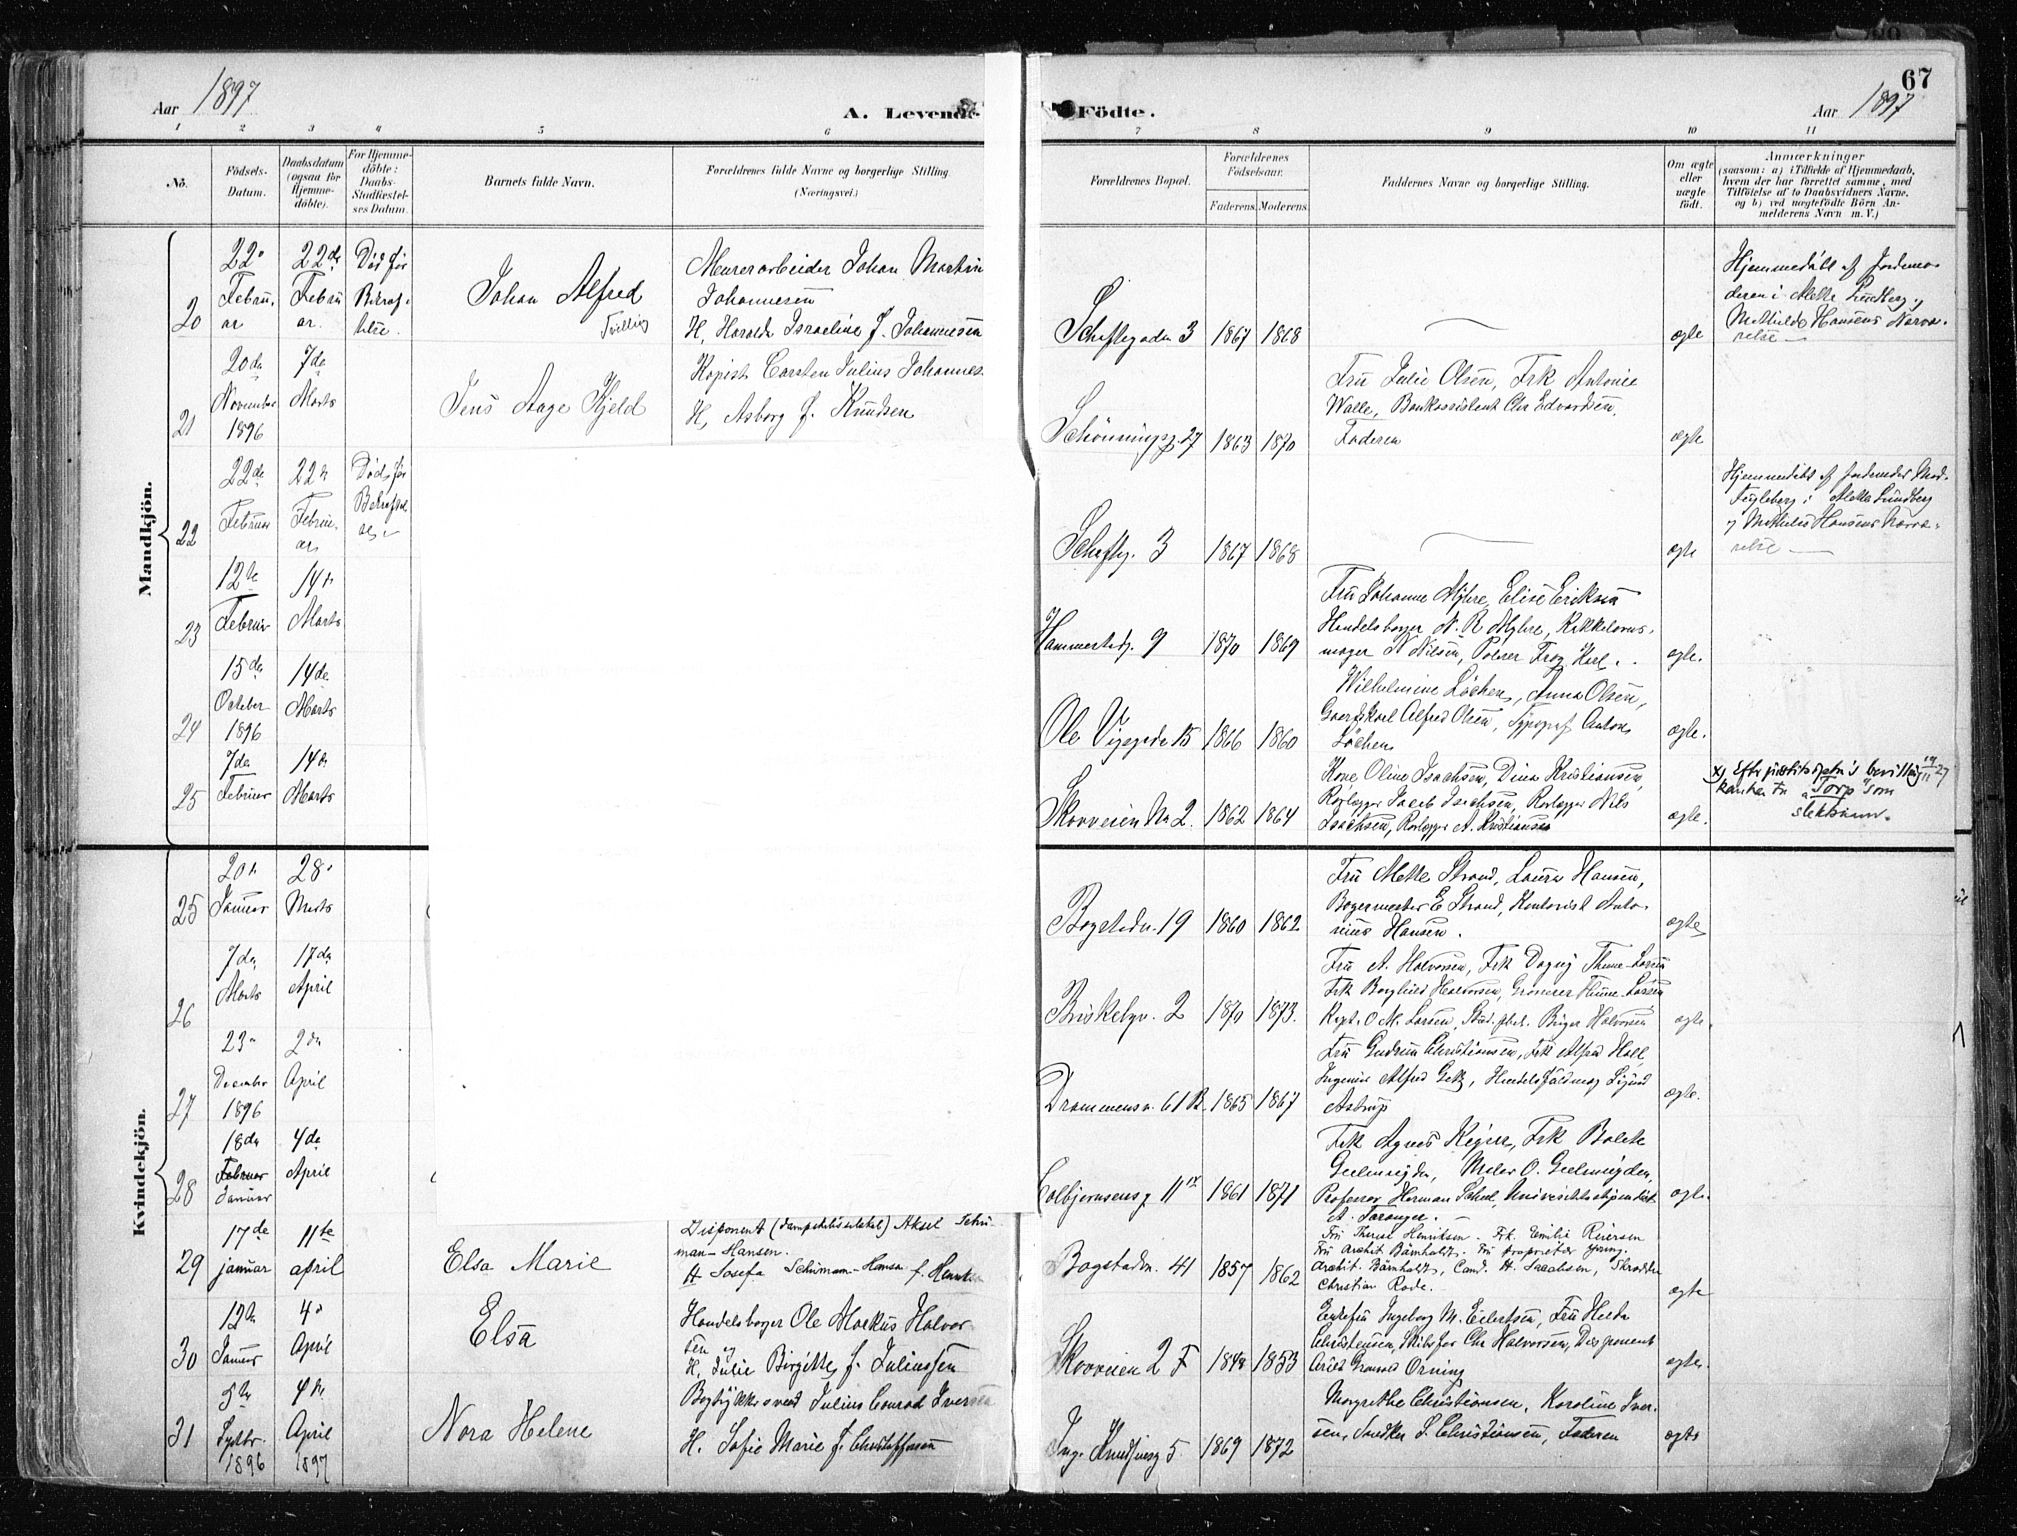 67
Aar 1897
A. Levende Födte.
Aar 1897
1 2 3 4 5 6 7 8 9 10 11
No.
Födsels-
Datum.
Daabsdatum
(ogsaa for
Hjemme-
döbte).
For Hjemme-
döbte:
Daabs-
Stadfæstel-
ses Datum.
Barnets fulde Navn.
Forældrenes fulde Navne og borgerlige Stilling.
(Næringsvei.)
Forældrenes Bopæl.
Forældrenes
Födselsaar.
Faderens. Moderens.
Faddernes Navne og borgerlige Stilling.
Om ægte
eller
uægte
födt.
Anmærkninger
(saasom: a) i Tilfælde af Hjemmedaab,
hvem der har forrettet samme, med
Tilföielse af to Daabsvidners Navne,
og b) ved uægtefödte Börn An-
melderens Navn m. V.)
Mandkjön.
20
22
Febru
ar
22de
Febru
ar.
Död før
Bekræf-
telse.
Johan Alfred
Tvilling
Murerarbeider Johan Martin
Johannesen
H. Haralda Israeline f. Johannesen
Schaftegaden 3
1867 1868
ægte
Hjemmedöbt af Jordemo-
deren i Mette Lundberg,
Mathilde Hansens Nærvæ-
relse
21
20de
November
1896
7de
Marts
Jens Aage Kjeld
Kopist Carsten Julius Johannes
H. Asborg f. Knudsen
Schönningsg. 27
1863 1870
Fru Julie Olsen, Frk Antonie
Walle, Bankassistent Chr Edvardsen,
Faderen
ægte
22
22de
Februar
22
Febru
ar
Död før
Bekræftel
se
Schafteg. 3
1867 1868
ægte
Hjemmedöbt af Jordemoder Mad.
Fugleberg i Mette Lundberg
og Mathilde Hansens Nærvæ-
relse
23
12te
Februar
14de
Marts
Hammerstadg. 9
1870 1869
Fru Johanne Myhre, Elise Eriksen
Handelsborger N. R Myhre,
mager N Nilsen,
ægte.
24
15de
October
1896
14de
Marts
Ole Vigsgade 15
1866 1860
Wilhelmine Löchen, Anna Olsen,
Gaardskarl Alfred Olsen, Typograf Anton
Löchen
ægte.
25
7de
Februar
14de
Marts
Skovveien No 2.
1862 1864
Kone Oline Isachsen, Dina Kristiansen,
Rörlegger Jacob Isachsen, Rörlegger Nils
Isachsen, Rörlegger A. Kristiansen
ægte.
x) Efter justitsdptn's bevilling 19/11 27
kan han føre "Torp" som
slektsnavn.
Kvindekjön.
25
20
Januar
28
Marts
Bogstadv. 19
1860 1862
Fru Mette Strand, Laura Hansen,
Bagermester E Strand, Kontorist Anto-
nius Hansen.
ægte
26
7de
Marts
17de
April
Briskebyv. 2
1870 1873.
Fru A. Halvorsen, Frk Dagny Thune-Larsen
Frk Borghild Halvorsen, Grosserer Thune-Larsen
Kapt. O M. Larsen, Birger Halvorsen
ægte.
27
23
December
1896
2den
April
Drammensv. 61 B.
1865 1867
Fru Gudrun Christiansen, Frk Alfa Holl
Ingeniör Alfred Getz, Sigurd
Astrup
ægte.
28
18de
Februar
Januar
4de
April
Colbjörnsensg 11
1861 1871
Frk Agnes Keyser, Frk Bolette
Geelmuyden, Maler O. Geelmuyden,
Professor Herman Schul, Universitetsstipendiat
A. Taranger.
ægte.
29
17de
januar
11te
april
Elsa Marie
Disponent (dampskibsselskab) Aksel Schu-
man-Hansen.
H Josefa Schuman-Hansen f. Henriksen
Bogstadv. 41
1857 1862
Fru Therese Henriksen. Frk. Emilie Reiersen
Fru arkit Bärnholdt. Fru proprietær Yring.
Arkit. Bärnholdt, Cand. H. Jacobsen, Skrædder
Christian Rode.
ægte
30
12te
Januar
4
April
Elsa
Handelsborger Ole Markus Halvor
sen og
H. Julie Birgitte f. Juliussen
Skovveien 2 F
1848 1853
Enkefru Ingeborg M. Eilertsen, Fru Hilda
Christensen, Skibsför Chr Halvorsen, Disponent
Orning
ægte.
31
5te
Septbr.
1896
4de
April
1897
Nora Helene
Bogtrykkersvend Julius Conrad Iversen
H. Sofie Marie f. Christoffersen
Inge Knudsensg 5
1869 1872
Margrethe Christiansen, Karoline Iver-
sen, Snedker S. Christiansen, Faderen
ægte